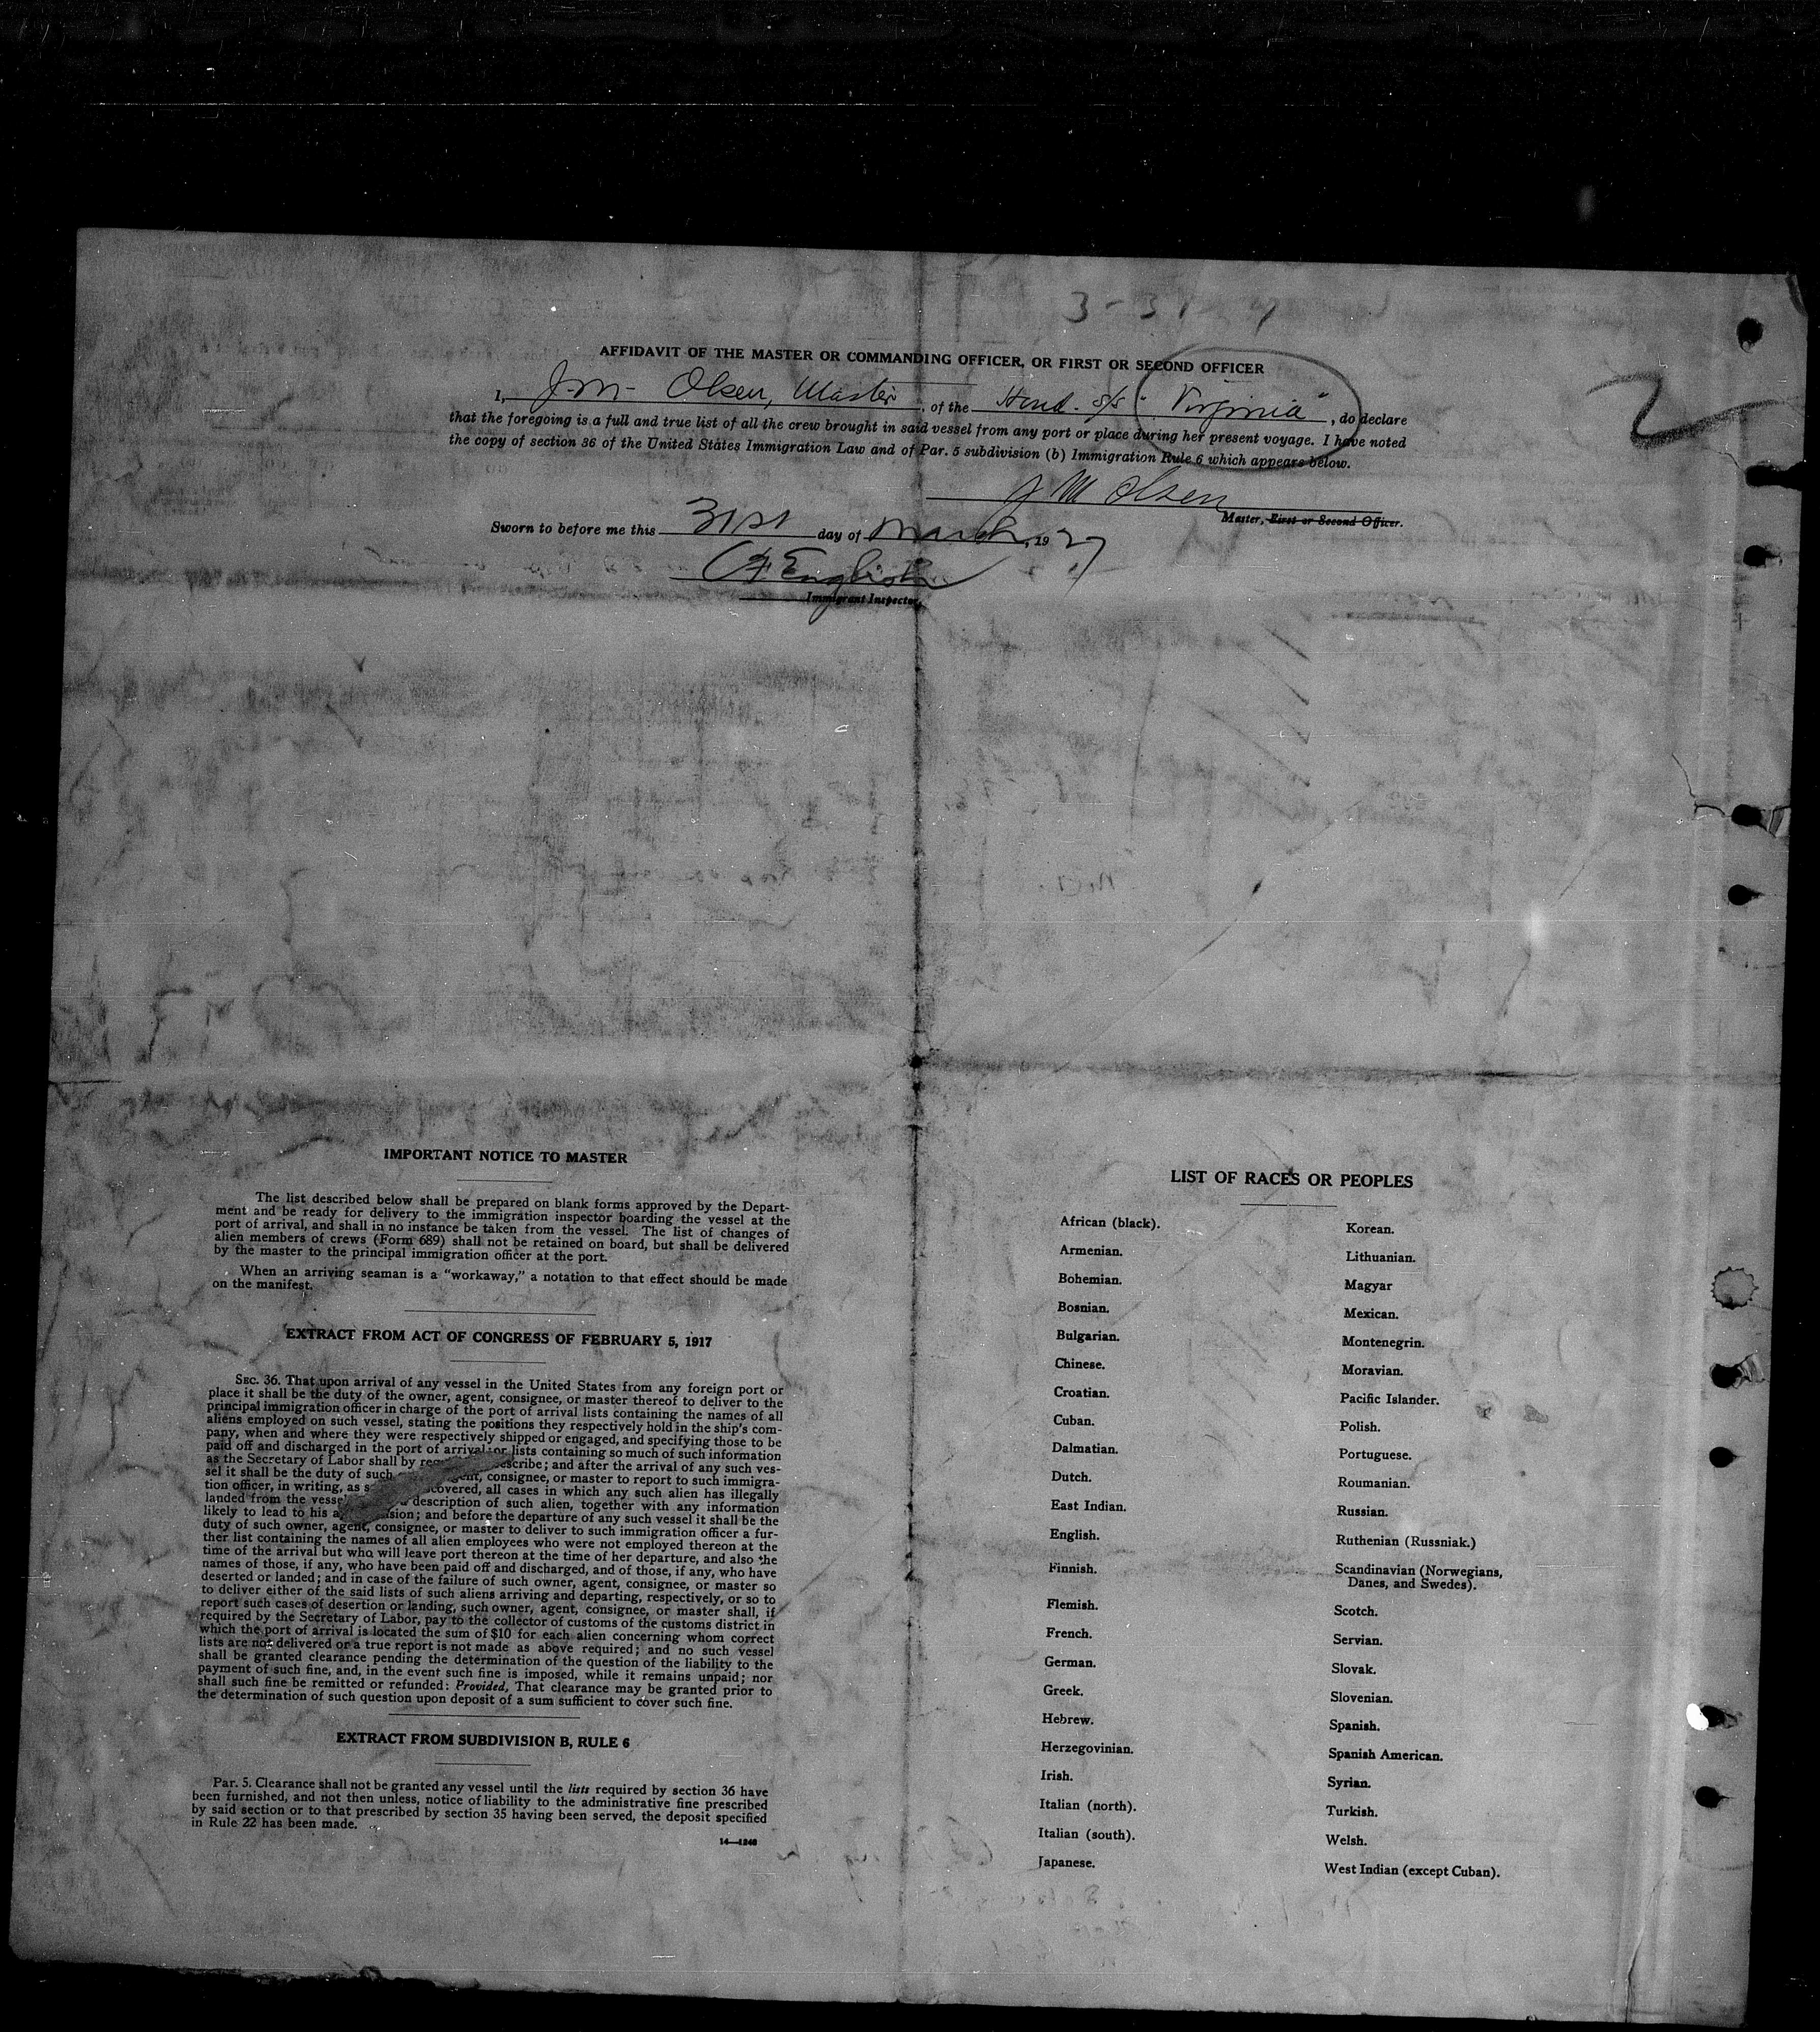 3-31
AFFIDAVIT OF THE MASTER OR COMMANDING OFFICER, OR FIRST OR SECOND OFFICER
I, J-M- Olsen, Master, of the Hond. s/s "Virginia", do declare
that the foregoing is a full and true list of all the crew brought in said vessel from any port or place during her present voyage. I have noted
the copy of section 36 of the United States Immigration Law and of Par. 5 subdivision (b) Immigration Rule 6 which appears below.
2
J M Olsen
Master, First or Second Officer.
Sworn to before me this 31st day of March, 1927
English
Immigrant Inspector.
IMPORTANT NOTICE TO MASTER
The list described below shall be prepared on blank forms approved by the Depart-
ment and be ready for delivery to the immigration inspector boarding the vessel at the
port of arrival, and shall in no instance be taken from the vessel. The list of changes of
alien members of crews (Form 689) shall not be retained on board, but shall be delivered
by the master to the principal immigration officer at the port.
When an arriving seaman is a "workaway," a notation to that effect should be made
on the manifest.
EXTRACT FROM ACT OF CONGRESS OF FEBRUARY 5, 1917
SEC. 36. That upon arrival of any vessel in the United States from any foreign port or
place it shall be the duty of the owner, agent, consignee, or master thereof to deliver to the
principal immigration officer in charge of the port of arrival lists containing the names of all
aliens employed on such vessel, stating the positions they respectively hold in the ship's com-
pany, when and where they were respectively shipped or engaged, and specifying those to be
paid off and discharged in the port of arrival; or lists containing so much of such information
as the Secretary of Labor shall by scribe; and after the arrival of any such ves-
sel it shall be the duty of such agent, consignee, or master to report to such immigra-
tion officer, in writing, as covered, all cases in which any such alien has illegally
landed from the vessel description of such alien, together with any information
likely to lead to his sion; and before the departure of any such vessel it shall be the
duty of such owner, agent, consignee, or master to deliver to such immigration officer a fur-
ther list containing the names of all alien employees who were not employed thereon at the
time of the arrival but who will leave port thereon at the time of her departure, and also the
names of those, if any, who have been paid off and discharged, and of those, if any, who have
deserted or landed; and in case of the failure of such owner, agent, consignee, or master so
to deliver either of the said lists of such aliens arriving and departing, respectively, or so to
report such cases of desertion or landing, such owner, agent, consignee, or master shall, if
required by the Secretary of Labor, pay to the collector of customs of the customs district in
which the port of arrival is located the sum of $10 for each alien concerning whom correct
lists are not delivered or a true report is not made as above required; and no such vessel
shall be granted clearance pending the determination of the question of the liability to the
payment of such fine, and, in the event such fine is imposed, while it remains unpaid; nor
shall such fine be remitted or refunded: Provided, That clearance may be granted prior to
the determination of such question upon deposit of a sum sufficient to cover such fine.
EXTRACT FROM SUBDIVISION B, RULE 6
Par. 5. Clearance shall not be granted any vessel until the lists required by section 36 have
been furnished, and not then unless, notice of liability to the administrative fine prescribed
by said section or to that prescribed by section 35 having been served, the deposit specified
in Rule 22 has been made.
14—1246
LIST OF RACES OR PEOPLES
African (black).
Armenian.
Bohemian.
Bosnian.
Bulgarian.
Chinese.
Croatian.
Cuban.
Dalmatian.
Dutch.
East Indian.
English.
Finnish.
Flemish.
French.
German.
Greek.
Hebrew.
Herzegovinian.
Irish.
Italian (north).
Italian (south).
Japanese.
Korean.
Lithuanian.
Magyar
Mexican.
Montenegrin.
Moravian.
Pacific Islander.
Polish.
Portuguese.
Roumanian.
Russian.
Ruthenian (Russniak.)
Scandinavian (Norwegians,
Danes, and Swedes).
Scotch.
Servian.
Slovak.
Slovenian.
Spanish.
Spanish American.
Syrian.
Turkish.
Welsh.
West Indian (except Cuban).